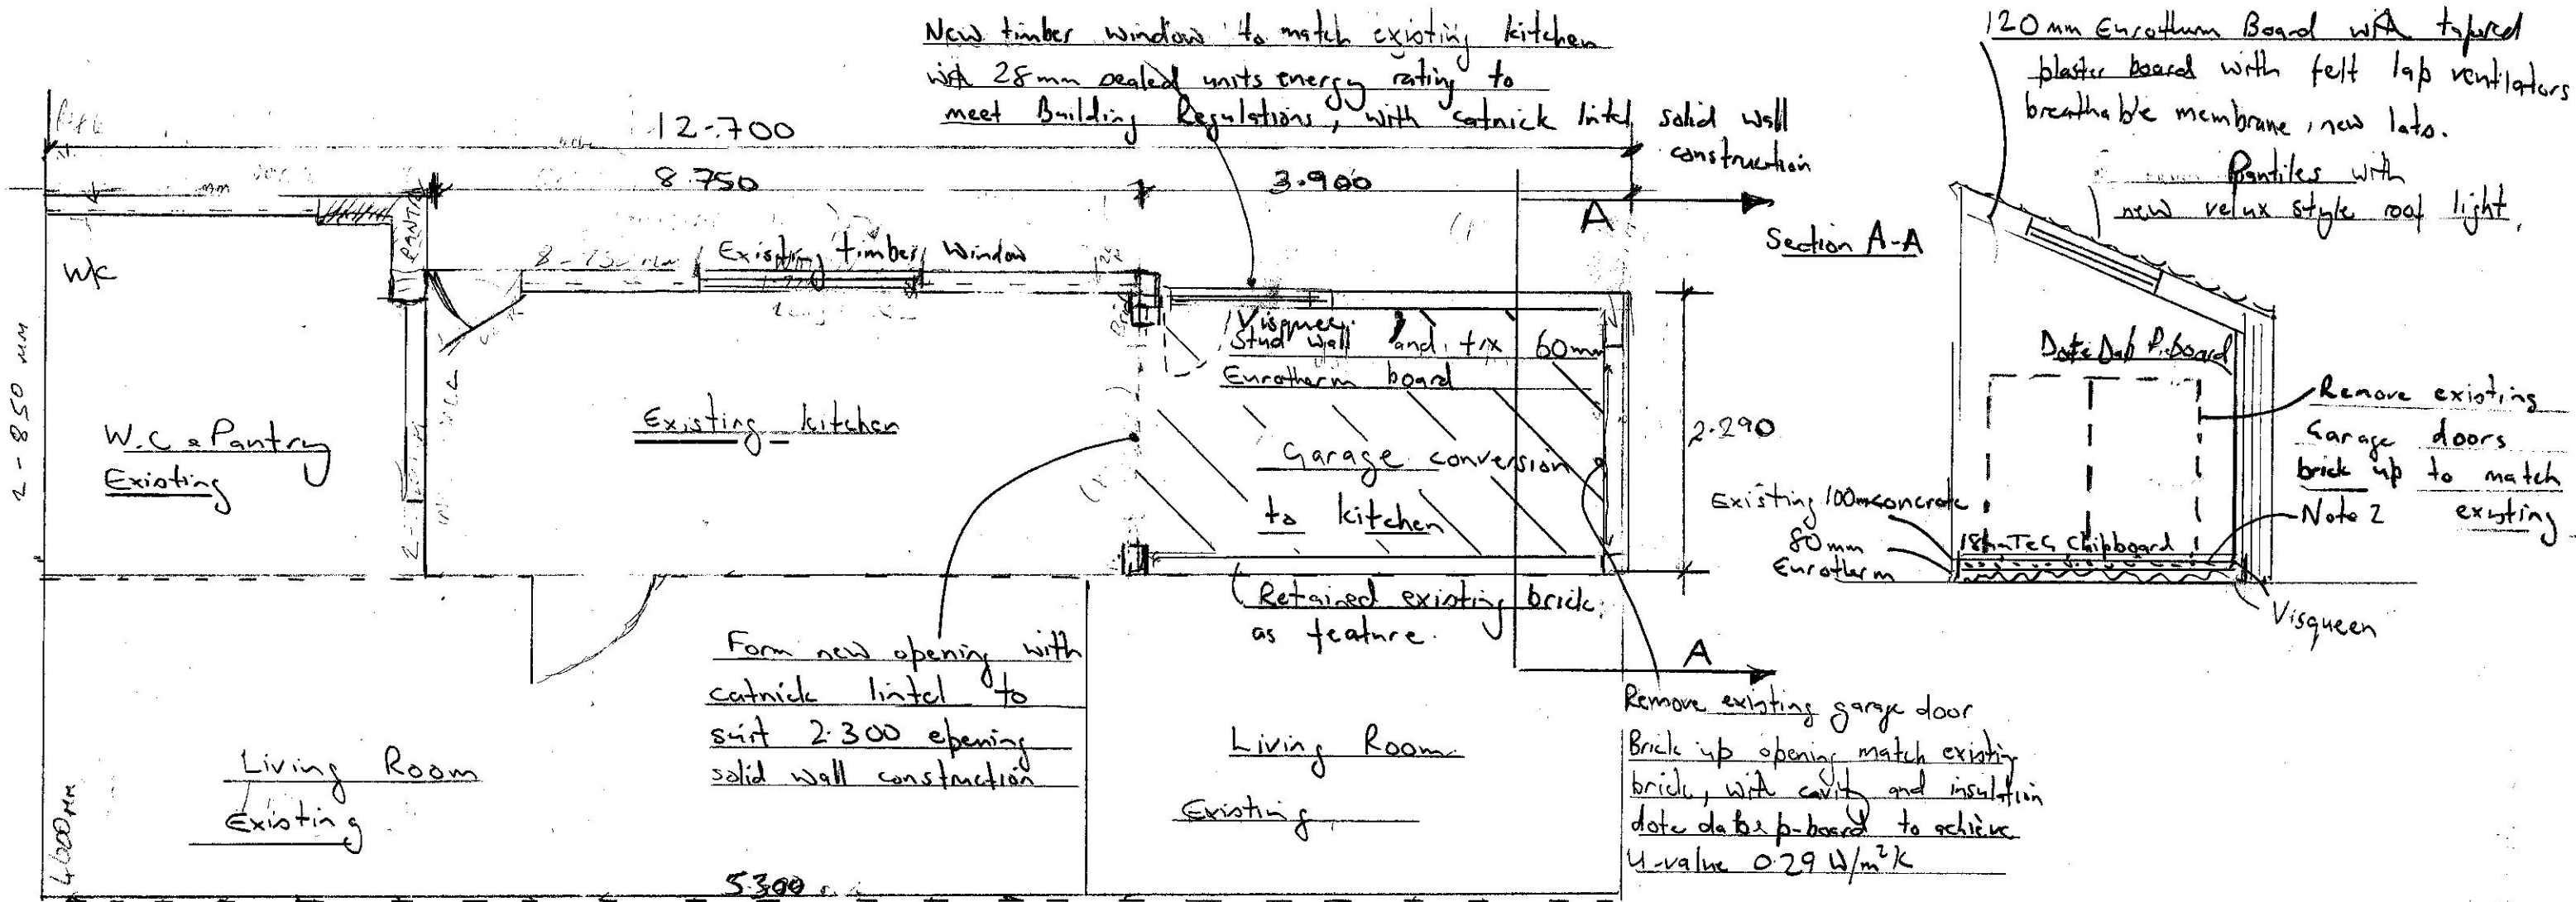 New timber window to match existing kitchen
with 28mm sealed units energy rating to
meet Building Regulations, with catnick lintel solid wall
construction
120mm Eurotherm Board with tapered
plaster board with felt lap ventilators
breathable membrane, new lats.
Pantiles with
new velux style roof light.
12.700
8.750
3.900
A
Section A-A
PANTRY
W/C
Existing timber window
Visqueen
Stud wall and fix 60mm
Eurotherm board
2-850 MM
W.C & Pantry
Existing
Existing kitchen
Garage conversion
to kitchen
2.290
Dot & Dab P.board
Remove existing
Garage doors
brick up to match
existing
Note 2
Existing 100mm concrete
80mm
Eurotherm
18mm T&G Chipboard
Visqueen
Retained existing brick
as feature.
Form new opening with
catnick lintel to
suit 2.300 opening
solid wall construction
A
Remove existing garage door
Brick up opening match existing
brick, with cavity and insulation
dot & dab p-board to achieve
U-value 0.29 W/m²K
Living Room
Existing
Living Room
Existing
4600MM
5.300